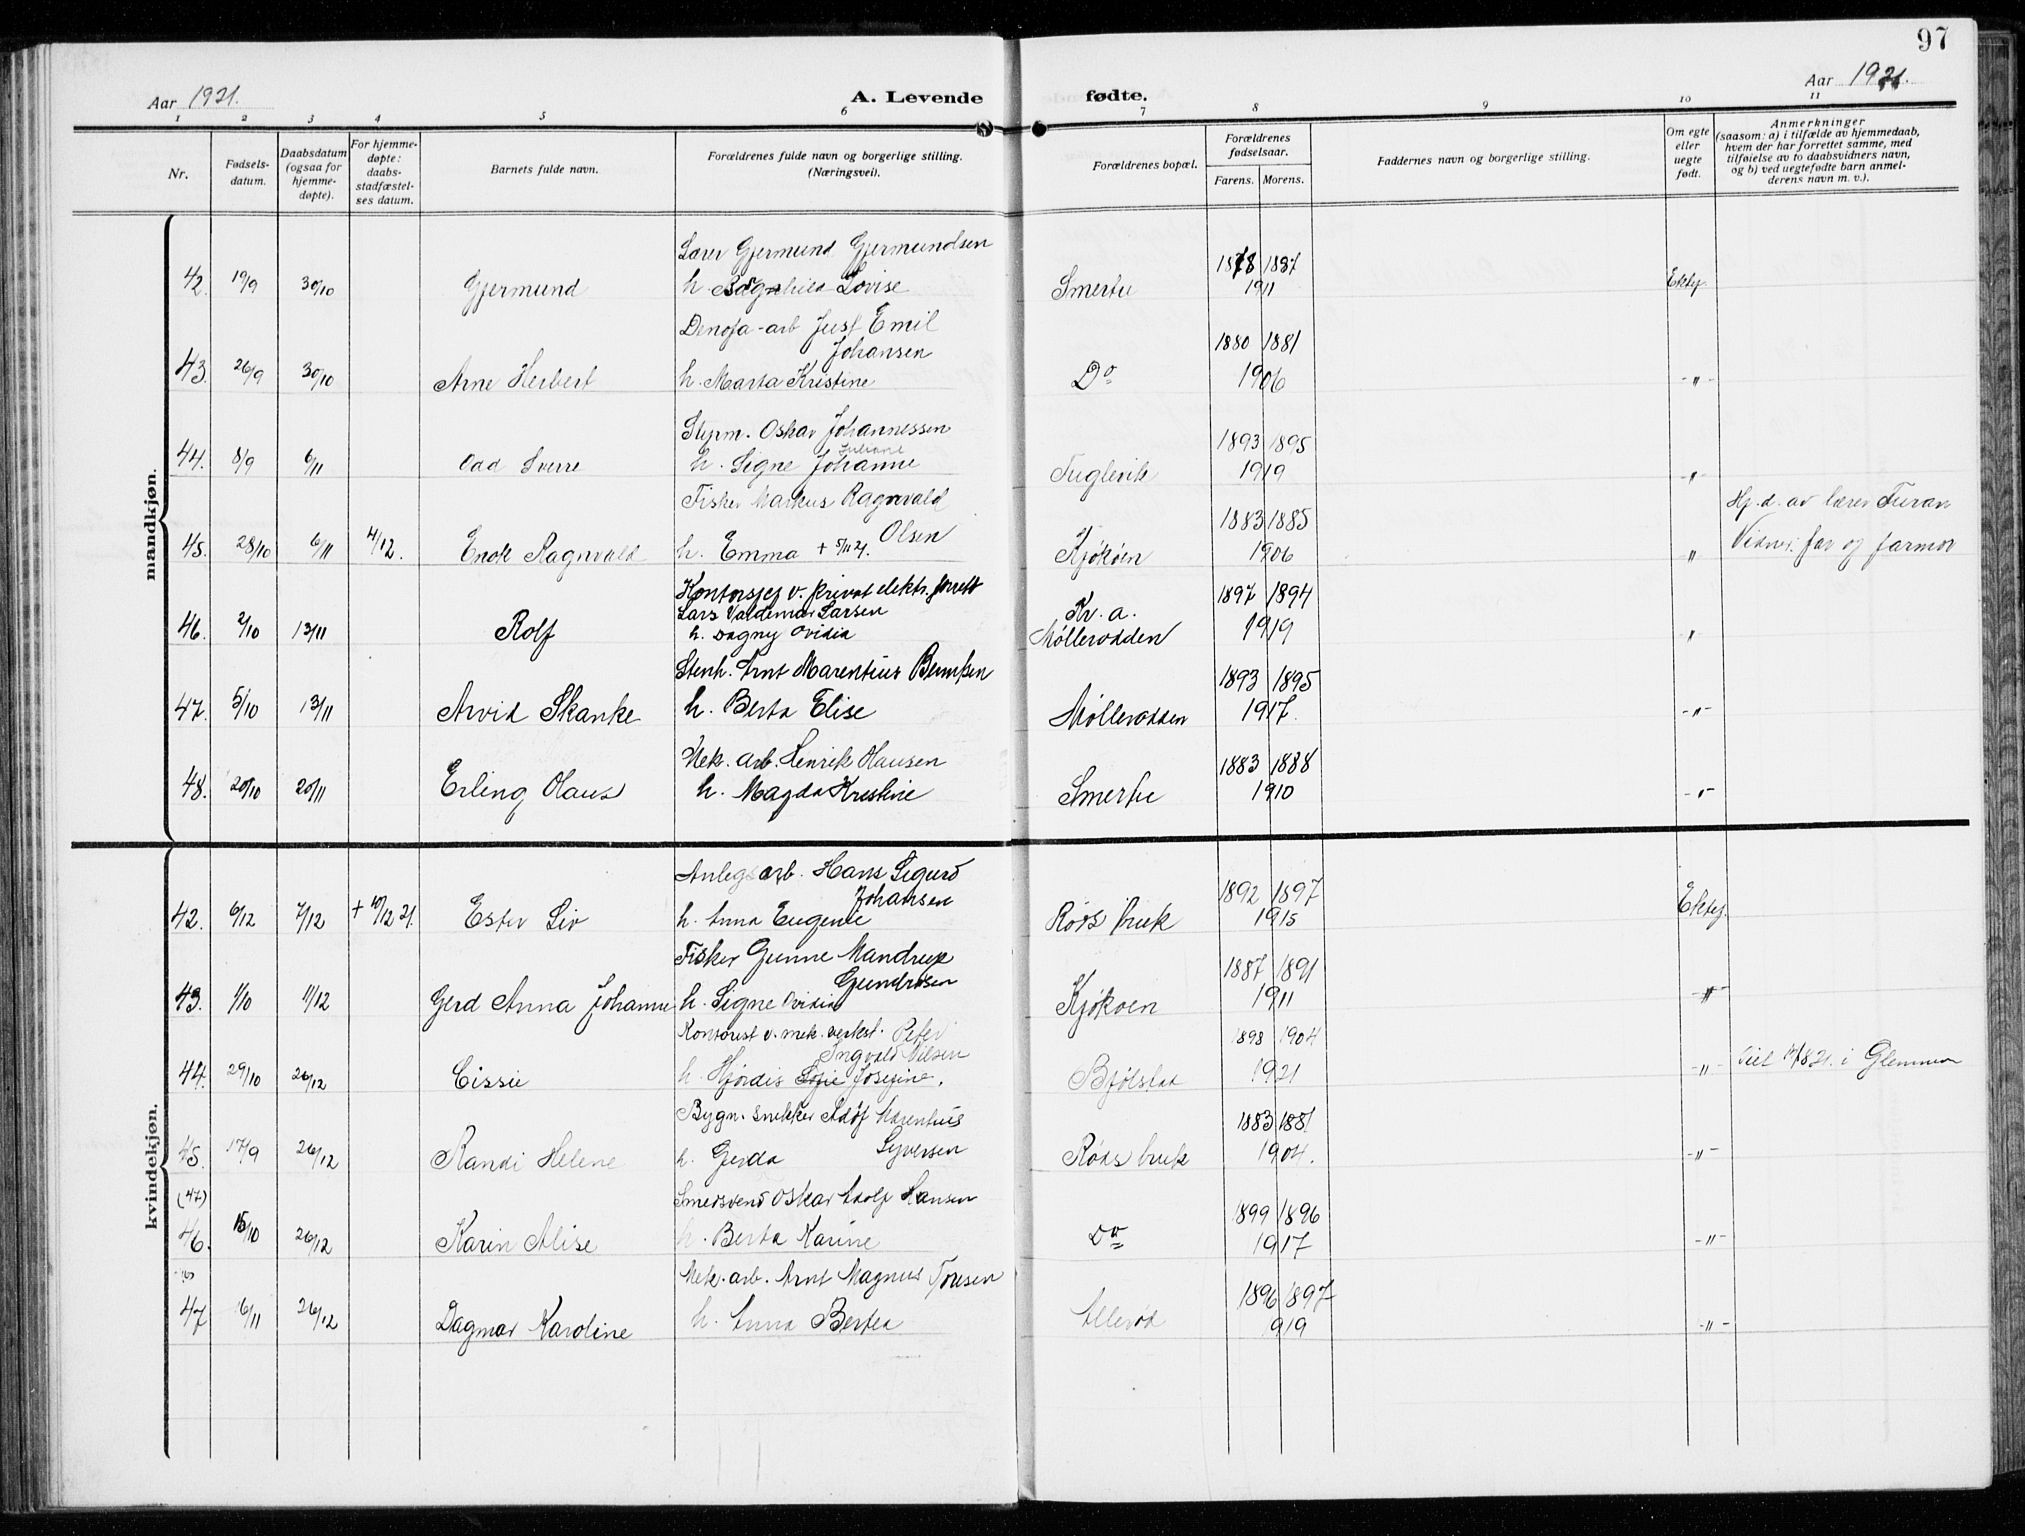 97
Aar 1921.
A. Levende fødte.
Aar 1921.
1 2 3 4 5 6 7 8 9 10 11
Nr.
Fødsels-
datum.
Daabsdatum
(ogsaa for
hjemme-
døpte).
For hjemme-
døpte:
daabs-
stadfæstel-
ses datum.
Barnets fulde navn.
Forældrenes fulde navn og borgerlige stilling.
(Næringsvei).
Forældrenes bopæl.
Forældrenes
fødselsaar.
Farens. Morens.
Faddernes navn og borgerlige stilling.
Om egte
eller
uegte
født.
Anmerkninger
(saasom: a) i tilfælde av hjemmedaab,
hvem der har forrettet samme, med
tilføielse av to daabsvidners navn,
og b) ved uegtefødte barn anmel-
derens navn m. v.).
mandkjøn.
Lærer Gjermund Gjermundsen
42. 19/9 30/10 Gjermund h. Lovise Smertu 1878 1887 1911 Ektef.
Denofa-arb Just Emil
Johansen
43. 26/9 30/10 Arne Herbert h. Marta Kristine Do 1880 1881 1906 -"-
Styrm. Oskar Johannessen
Juliane
44. 8/9 6/11 Odd Sverre h. Signe Johanne Fuglevik 1893 1895 1919 "
Fisker Markus Ragnvald
Olsen
45. 28/10 6/11 4/12. Enok Ragnvald h. Emma + 5/11 21. Kjøkøen 1883 1885 1906 " Hj.d. av lærer Furan
Vidner: far og farmor
Kontorsjef v. privat elektr. forrett
Lars Valdemar Larsen
46. 2/10 13/11 Rolf h. Dagny Ovidia Kr. a.
Møllerodden 1897 1894 1919 "
Stenh. Arnt Marentius
47. 5/10 13/11 Arvid Skanke h. Berta Elise Møllerodden 1893 1895 1917. -"-
Mek. arb. Henrik Hansen
48. 20/10 20/11 Erling Olaus h. Magda Kristine Smertu 1883 1888 1910 -"-
kvindekjøn.
Anlegsarb. Hans Sigurd
Johansen
42. 6/12 7/12 + 10/12 21. Ester Liv h. Anna Eugenie Røds bruk 1892 1897 1915 Ektef.
Fisker Gunne Mandrup
Gundersen
43. 1/10 11/12 Gerd Anna Johanne h. Signe Ovidia Kjøkøen 1887 1891 1911 -"-
Kontorist v. mek. verkst. Peter
Ingvald Nilsen
44. 29/10 26/12 Cissie h. Hjørdis Josefine. Bjølstad 1898 1904 1921 -"- Viet 8.21. i Glemmen
Bygn. snekker Adolf Marentius
Syversen
45. 17/9 26/12 Randi Helene h. Gerda Røds bruk 1883 1881 1904. -"-
(47) Smedsvend Oskar Adolf Hansen
46. 15/10 26/12 Karin Alise h. Berta Karine Do 1899 1896 1917 -"-
Mek. arb. Arnt Magnus
47 6/11 26/12 Dagmar Karoline h. Anna Bertea Allerød 1896 1897 1919 -"-